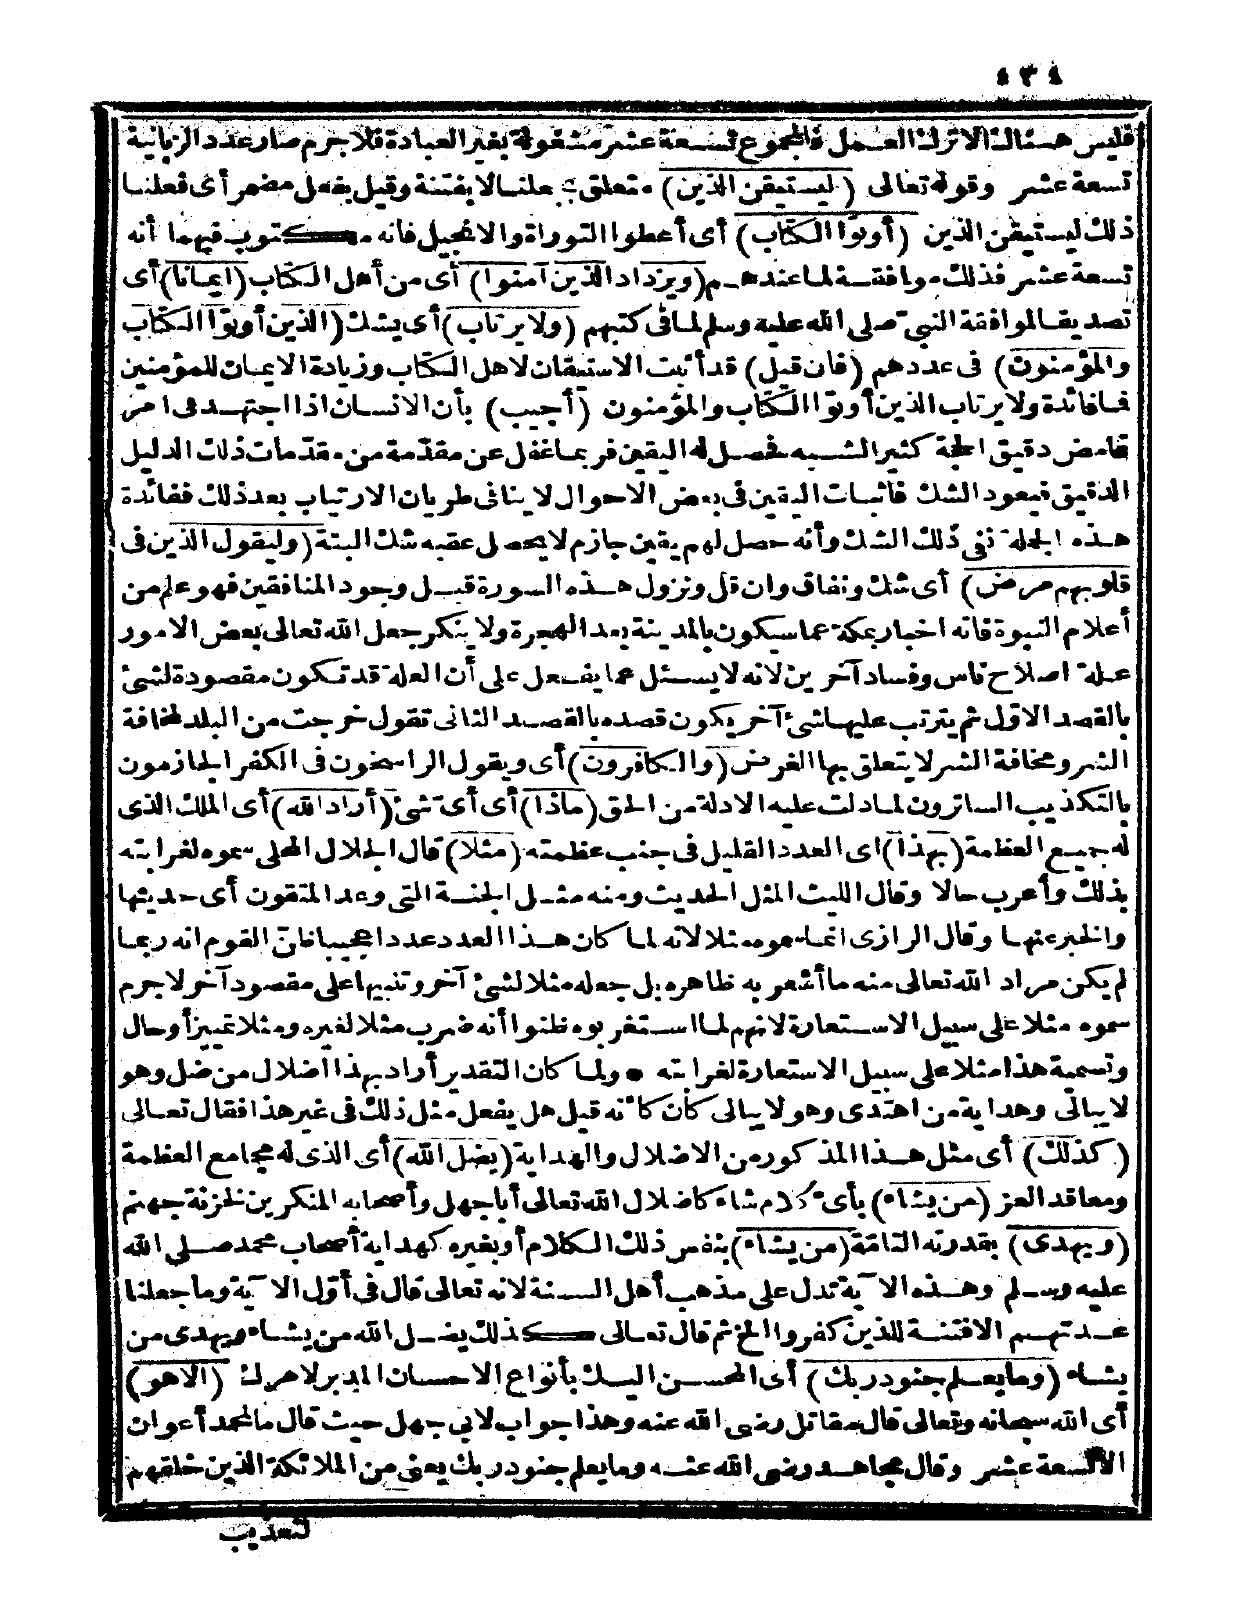 ٤٣٤
فليس هناك الا ترك العمل فالمجموع تسعة عشر مشغولة بغير العبادة فلا جرم صار عدد الزبانية
تسعة عشر وقوله تعالى (ليستيقن الذين) متعلق بجعلنا لا بفتنة وقيل بفعل مضمر أى فعلنا
ذلك ليستيقن الذين (أوتوا الكتاب) أى أعطوا التوراة والانجيل فانه مكتوب فيهما أنه
تسعة عشر فذلك موافقة لما عندهم (ويزداد الذين آمنوا) أى من أهل الكتاب (ايمانا) أى
تصديقا لموافقة النبىّ صلى الله عليه وسلم لما فى كتبهم (ولا يرتاب) أى يشك (الذين أوتوا الكتاب
والمؤمنون) فى عددهم (فان قيل) قد أثبت الاستيقان لاهل الكتاب وزيادة الايمان للمؤمنين
فما فائدة ولا يرتاب الذين أوتوا الكتاب والمؤمنون (أجيب) بأن الانسان اذا اجتهد فى امر
غامض دقيق الحجة كثير الشبه فحصل له اليقين فربما غفل عن مقدّمة من مقدّمات ذلك الدليل
الدقيق فيعود الشك فاثبات اليقين فى بعض الاحوال لا ينافى طريان الارتياب بعد ذلك ففائدة
هذه الجملة نفى ذلك الشك وأنه حصل لهم يقين جازم لا يحصل عقبه شك البتة (وليقول الذين فى
قلوبهم مرض) أى شك ونفاق وان قل ونزول هذه السورة قبل وجود المنافقين فهو علم من
أعلام النبوة فانه اخبار بمكة عما سيكون بالمدينة بعد الهجرة ولا ينكر جعل الله تعالى بعض الامور
علة اصلاح ناس وفساد آخرين لانه لا يسئل عما يفعل على أن العلة قد تكون مقصودة لشئ
بالقصد الاوّل ثم يترتب عليها شئ آخر يكون قصده بالقصد الثانى تقول خرجت من البلد لمخافة
الشر ومخافة الشر لا يتعلق بها الغرض (والكافرون) أى ويقول الراسخون فى الكفر الجازمون
بالتكذيب الساترون لما دلت عليه الادلة من الحق (ماذا) أى أىّ شئ (أراد الله) أى الملك الذى
له جميع العظمة (بهذا) اى العدد القليل فى جنب عظمته (مثلا) قال الجلال المحلى سموه لغرابته
بذلك وأعرب حالا وقال الليث المثل الحديث ومنه مثل الجنة التى وعد المتقون أى حديثها
والخبر عنها وقال الرازى انما سموه مثلا لانه لما كان هذا العدد عددا عجيبا فانّ القوم انه ربما
لم يكن مراد الله تعالى منه ما أشعر به ظاهره بل جعله مثلا لشئ آخر وتنبيها على مقصود آخر لا جرم
سموه مثلا على سبيل الاستعارة لانهم لما استغربوه ظنوا أنه ضرب مثلا لغيره ومثلا تمييز أو حال
وتسمية هذا مثلا على سبيل الاستعارة لغرابته • ولما كان التقدير أراد بهذا اضلال من ضل وهو
لا يبالى وهداية من اهتدى وهو لا يبالى كان كأنه قيل هل يفعل مثل ذلك فى غير هذا فقال تعالى
(كذلك) أى مثل هذا المذكور من الاضلال والهداية (يضل الله) أى الذى له مجامع العظمة
ومعاقد العز (من يشاء) بأىّ كلام شاء كاضلال الله تعالى أباجهل وأصحابه المنكرين لخزنة جهنم
(ويهدى) بقدرته التامّة (من يشاء) بنفس ذلك الكلام أو بغيره كهداية أصحاب محمد صلى الله
عليه وسلم وهذه الآية تدل على مذهب أهل السنة لانه تعالى قال فى أوّل الآية وما جعلنا
عدتهم الا فتنة للذين كفروا الخ ثم قال تعالى كذلك يضل الله من يشاء ويهدى من
يشاء (وما يعلم جنود ربك) أى المحسن اليك بأنواع الاحسان المدبر لامرك (الا هو)
أى الله سبحانه وتعالى قال مقاتل رضى الله عنه وهذا جواب لابى جهل حيث قال ما لمحمد أعوان
الا تسعة عشر وقال مجاهد رضى الله عنه وما يعلم جنود ربك يعنى من الملائكة الذين خلقهم
لتعذيب